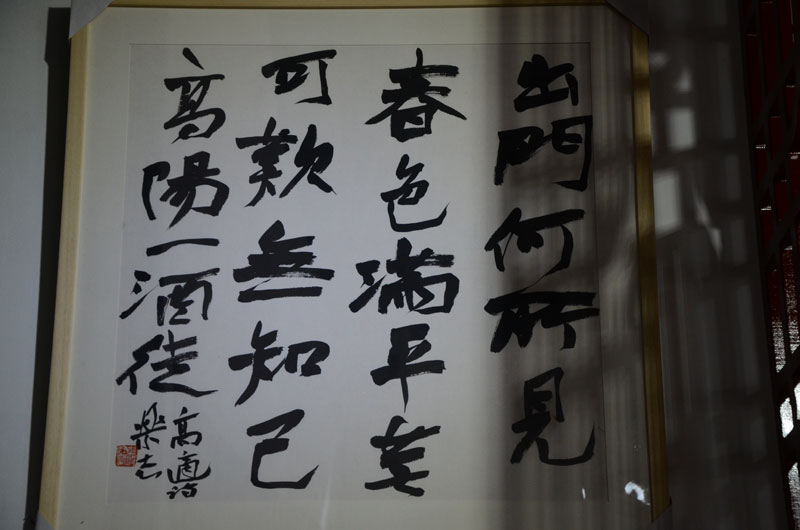 出門何所見
春色滿平蕪
可歎無知己
高陽一酒徒
高適詩
樂志